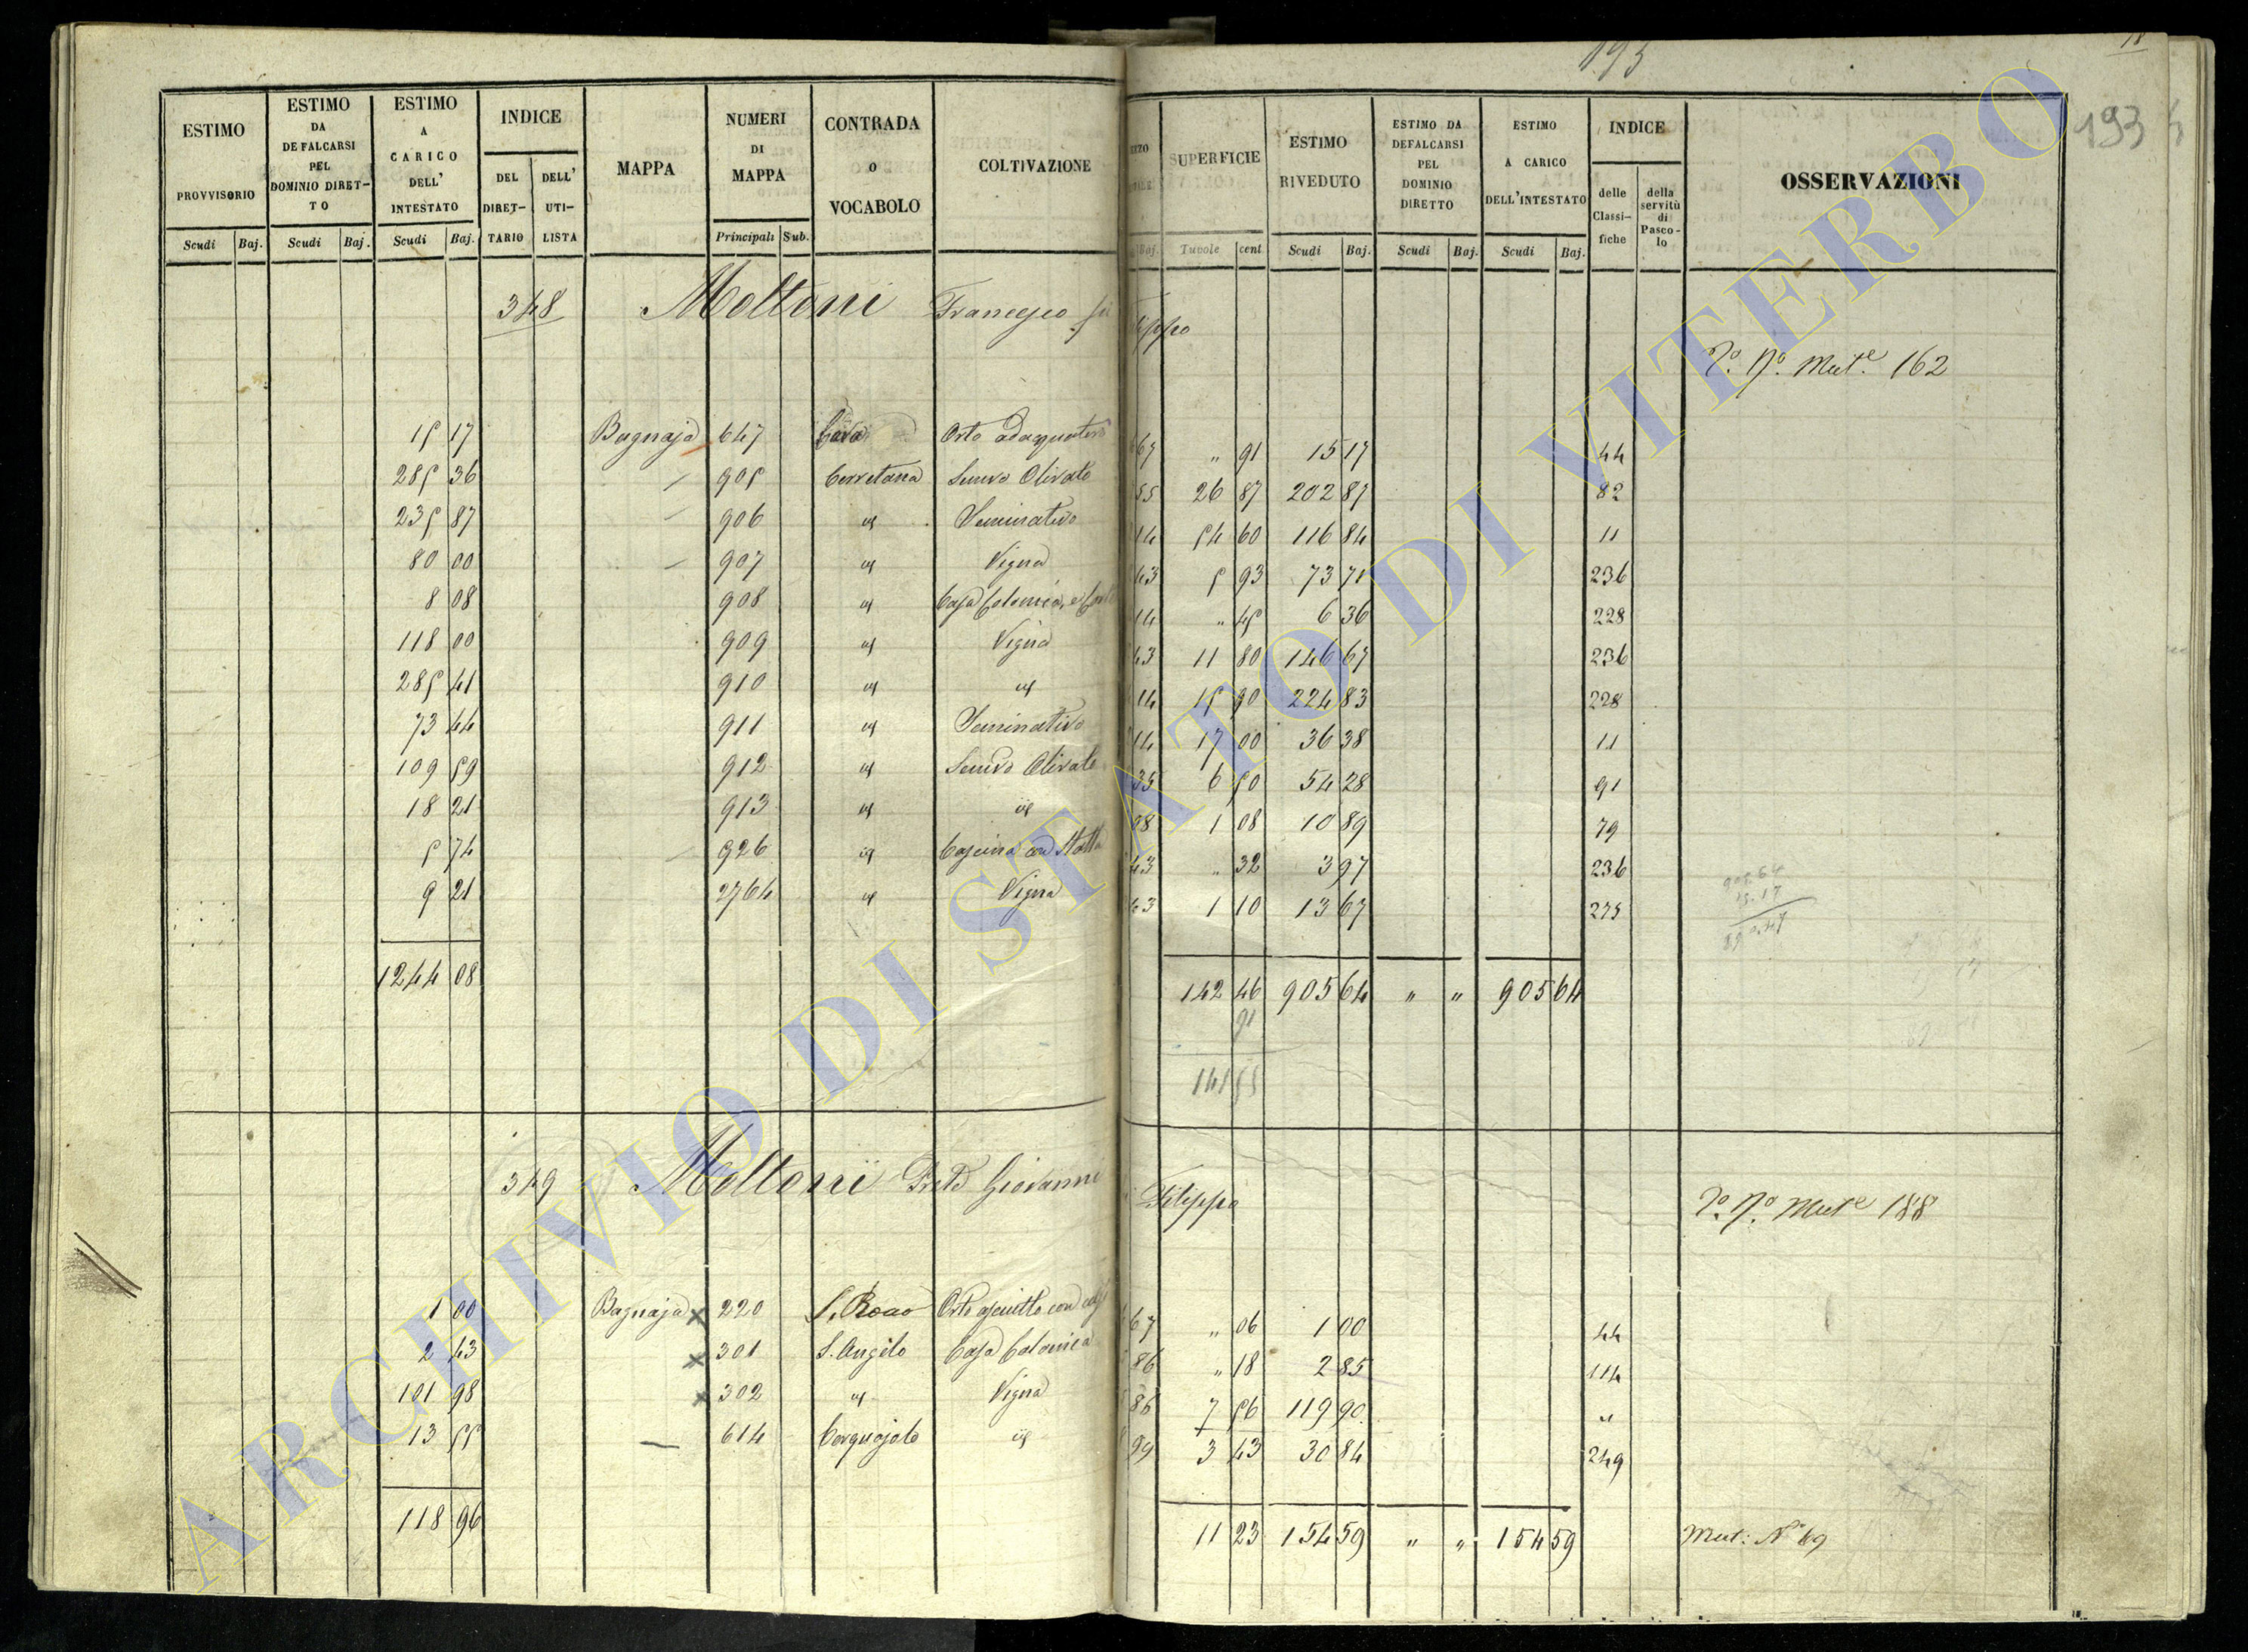 193
18
193
ESTIMO PROVVISORIO
ESTIMO DA DEFALCARSI PEL DOMINIO DIRET-TO
ESTIMO A CARICO DELL' INTESTATO
INDICE
DEL DIRET-TARIO
DELL' UTI-LISTA
MAPPA
NUMERI DI MAPPA
CONTRADA O VOCABOLO
COLTIVAZIONE
SUPERFICIE
ESTIMO RIVEDUTO
ESTIMO DA DEFALCARSI PEL DOMINIO DIRETTO
ESTIMO A CARICO DELL'INTESTATO
INDICE
delle Classi-fiche
della servitù di Pasco-lo
OSSERVAZIONI
Scudi Baj. Scudi Baj. Scudi Baj. Principali Sub. Baj. Tavole cent Scudi Baj. Scudi Baj. Scudi Baj.
348 Moltoni Francesco
162
15 17 Bagnaja 647 Cava Orto adaquativo 67 " 91 15 17 44
285 36 905 Cerretana Semvo Olivato 55 26 87 202 87 82
235 87 906 id Seminativo 14 54 60 116 84 11
80 00 907 id Vigna 43 5 93 73 71 236
8 08 908 id Casa Colonica, e 14 " 45 6 36 228
118 00 909 id Vigna 43 11 80 146 67 236
285 41 910 id id 14 15 90 224 83 228
73 44 911 id Seminativo 14 17 00 36 38 11
109 59 912 id Semvo Olivato 35 6 50 54 28 91
18 21 913 id id 08 1 08 10 89 79
5 74 926 id Cascina con Stalla 43 " 32 3 97 236
9 21 2764 id Vigna 43 1 10 13 67 275
905.64
15.17
890.47
1244 08 142 46 905 64 " " 905 64
91
141 55
349 Moltoni Giovanni Filippo
188
1 00 Bagnaja x 220 S. Rocco Orto asciutto con 67 " 06 1 00 44
2 43 x 301 S. Angelo Casa Colonica 86 " 18 2 85 114
101 98 x 302 id Vigna 86 7 56 119 90 "
13 55 614 id 99 3 43 30 84 249
118 96 11 23 154 59 " " 154 59 Mut: N° 69
ARCHIVIO DI STATO DI VITERBO